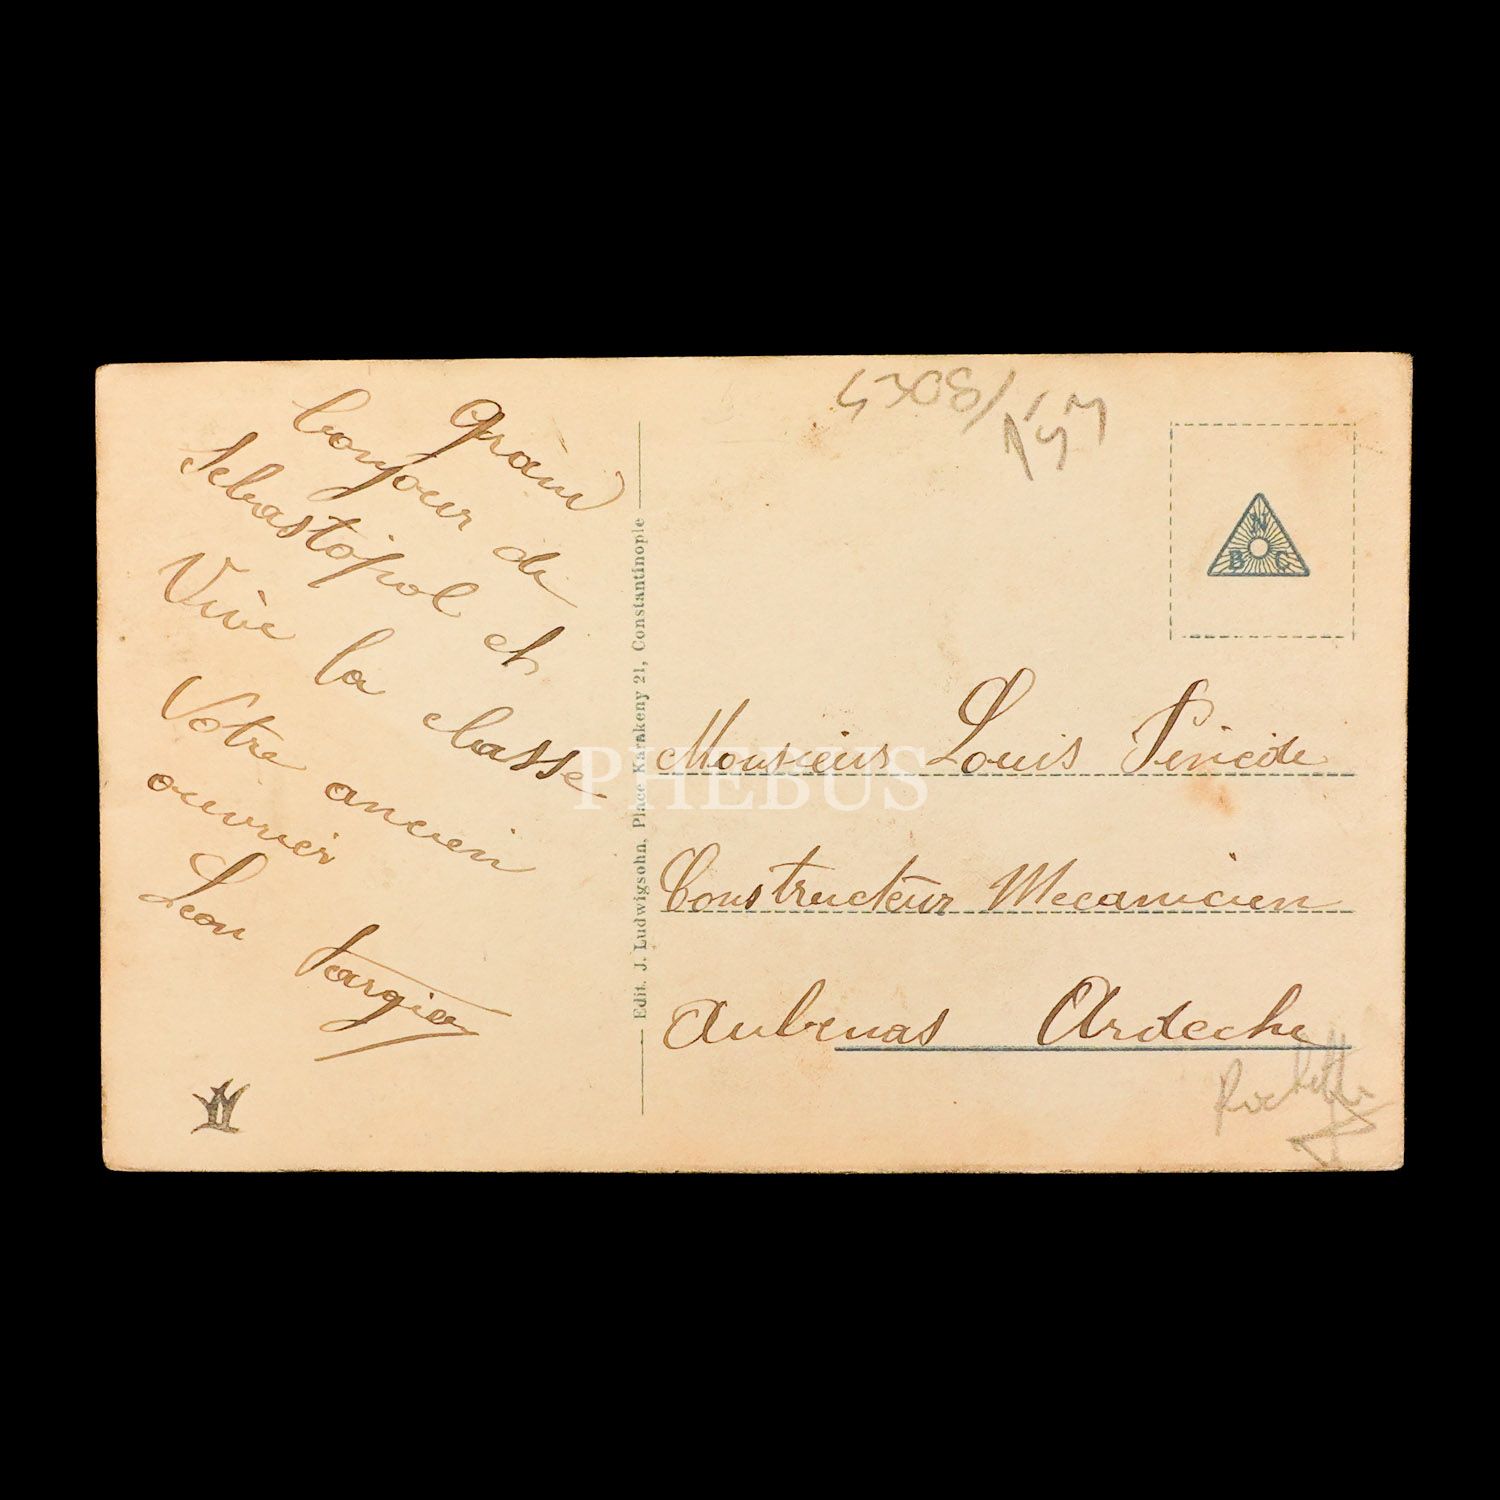 Grand
bonjour de
Sebastopol et
Vive la classe
Votre ancien
ouvrier
Leon
Edit. J. Ludwigsohn, Place Karakeny 21, Constantinople
N
B C
Monsieur Louis
Constructeur Mecanicien
Aubenas Ardeche
PHEBUS